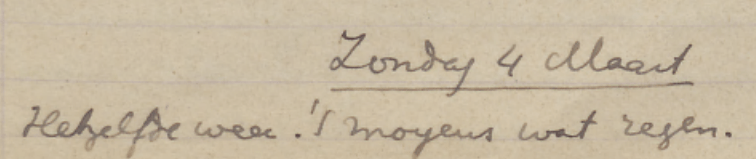 Zondag 4 Maart
Hetzelfde weer. 's morgens wat regen.